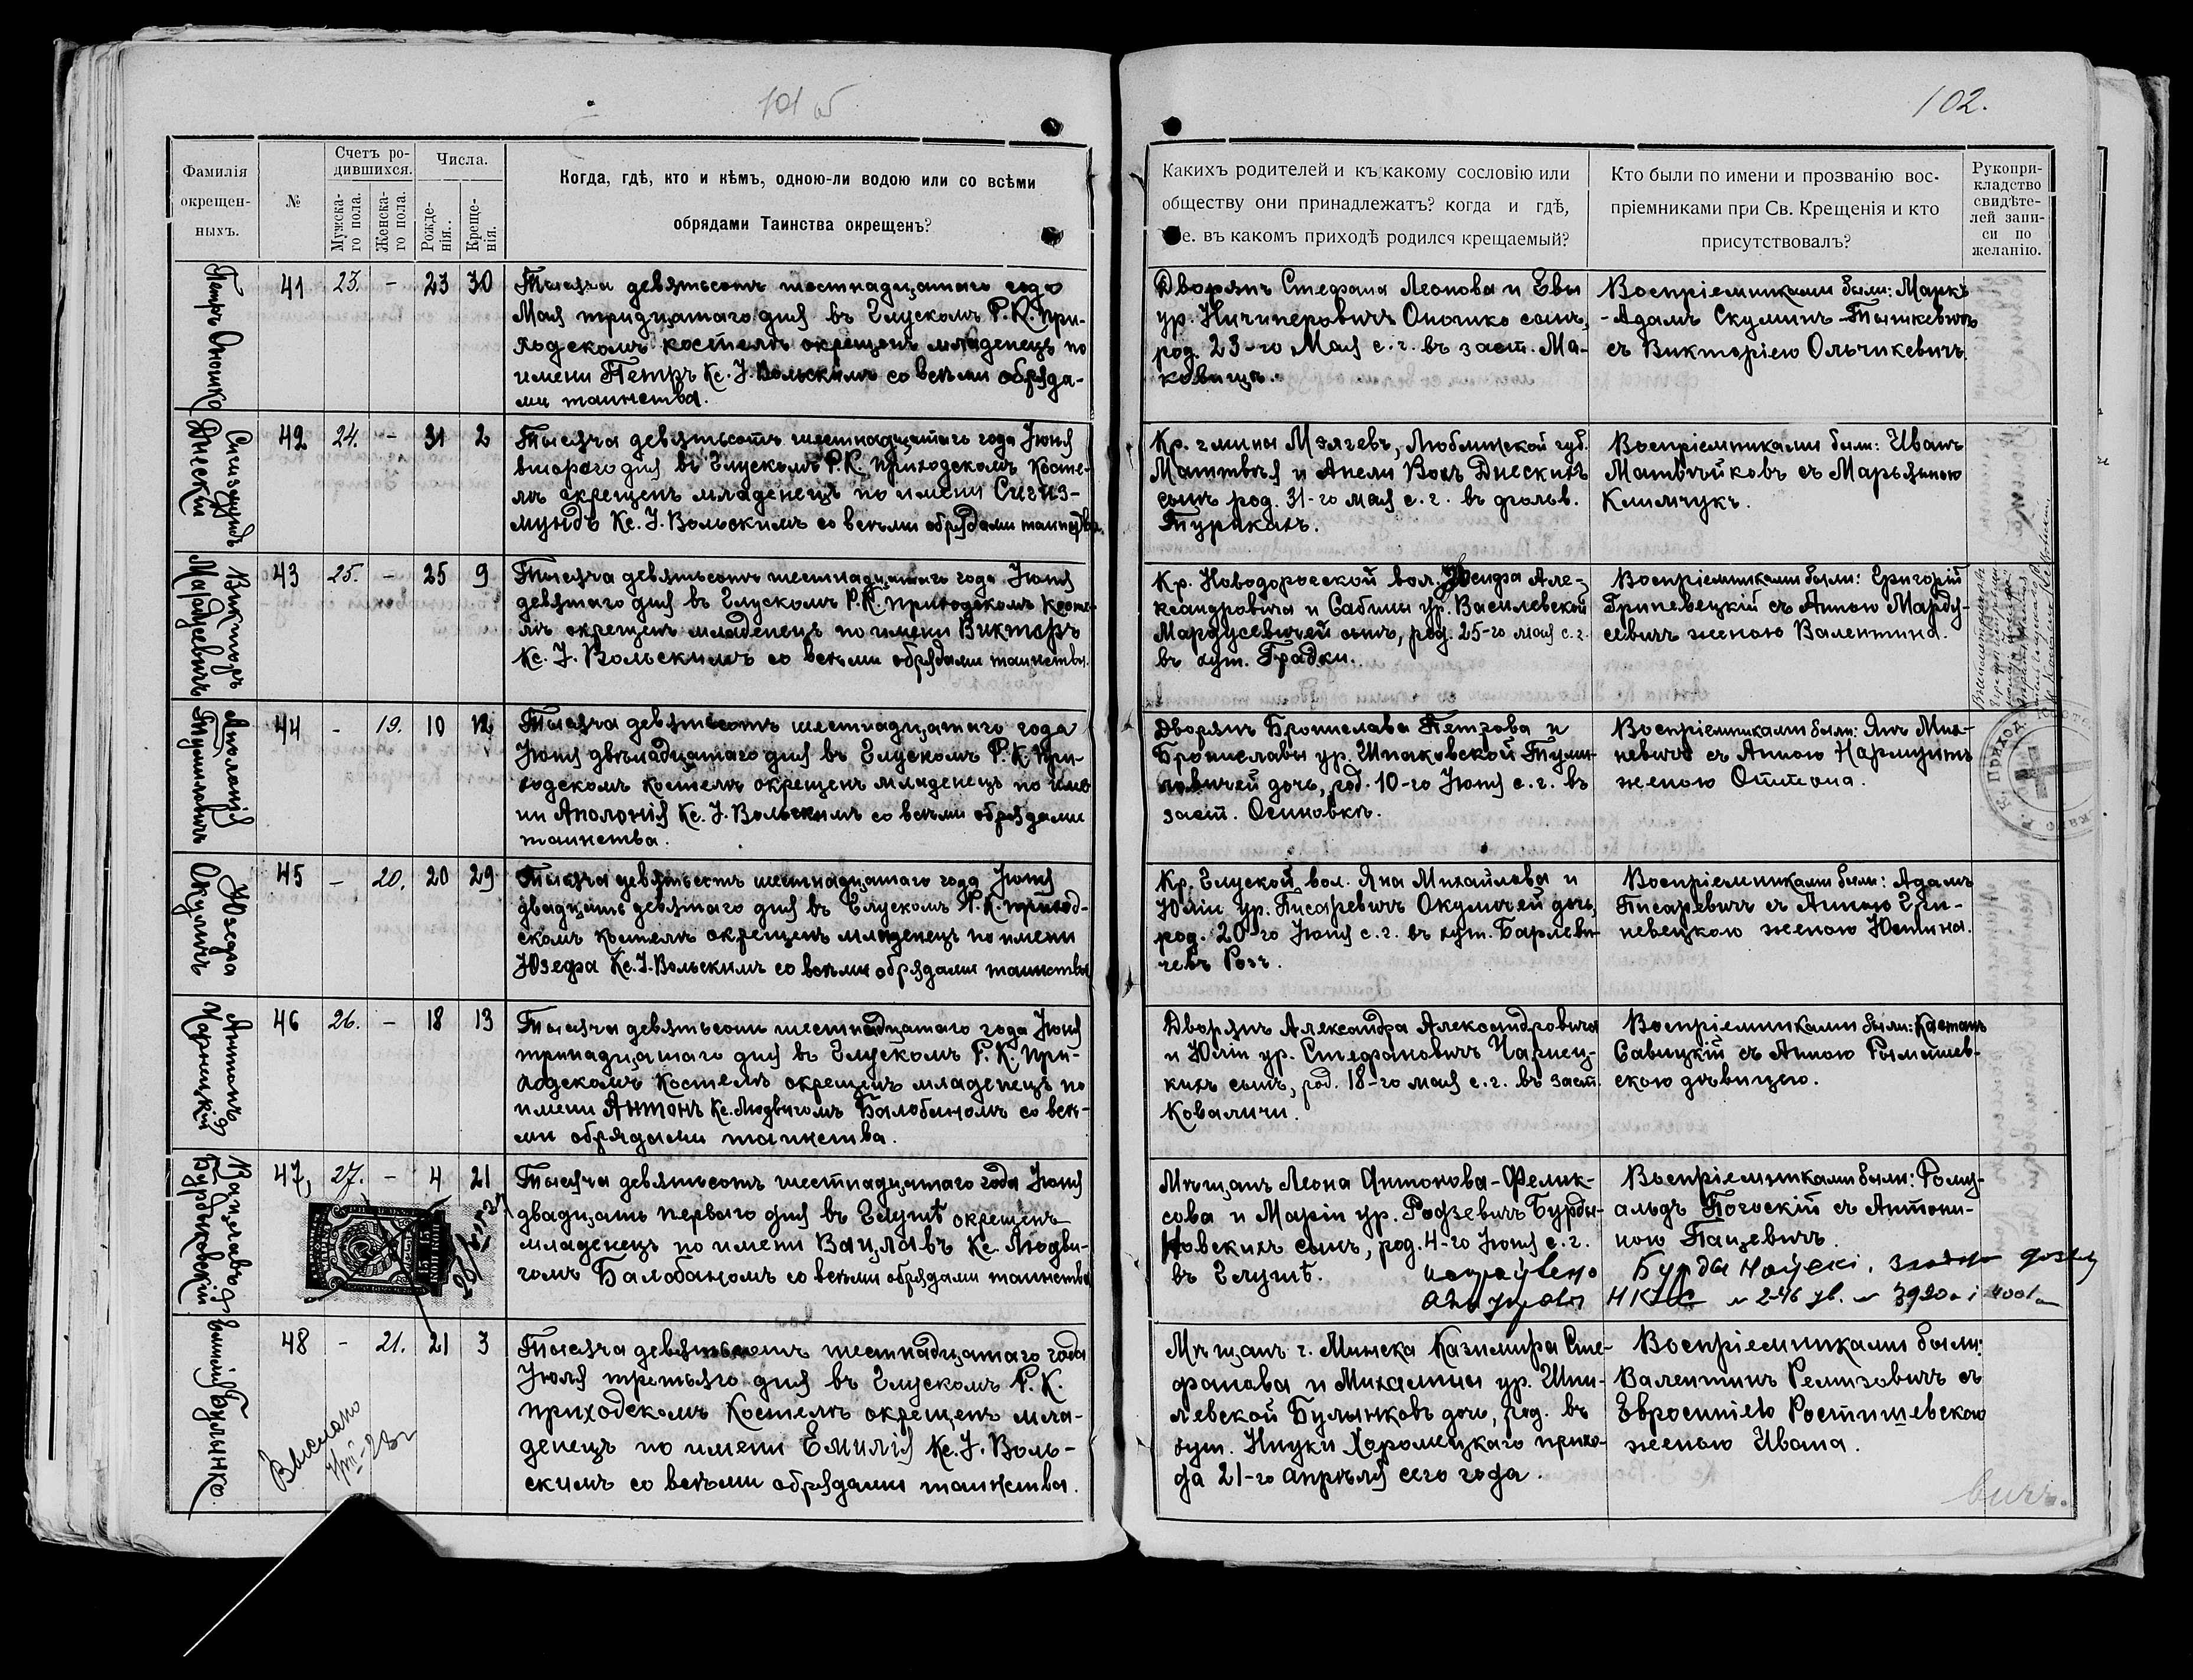 101 об
102.
Фамилія
окрещен-
ныхъ.
№
Счетъ ро-
дившихся.
Мужска-
го пола.
Женска-
го пола.
Числа.
Рожде-
нія.
Креще-
нія.
Когда, гдѣ, кто и кѣмъ, одною-ли водою или со всѣми
обрядами Таинства окрещенъ?
Какихъ родителей и къ какому сословію или
обществу они принадлежатъ? когда и гдѣ,
е. въ какомъ приходѣ родился крещаемый?
Кто были по имени и прозванію вос-
пріемниками при Св. Крещенія и кто
присутствовалъ?
Рукопри-
кладство
свидѣте-
лей запи-
си по
желанію.
Петръ Оношко
41 23. - 23 30
Тысяча девятьсотъ шестнадцатаго года
Мая тридцатаго дня въ Глускомъ Р.К. при-
ходскомъ костелѣ окрещенъ младенецъ по
имени Петръ Кс. І. Вольскимъ со всѣми обряда-
ми таинства.
Дворянъ Стефана Леонова и Евы
ур. Ничипоровичъ Оношко сынъ,
род. 23-го Мая с.г. въ заст. Ма-
ковищѣ.
Воспріемниками были: Маркъ
-Адамъ Скуминъ-Тышкевичъ
съ Викторіею Ольчикевичъ.
Сигизмундъ
Днескій
42 24. - 31 2
Тысяча девятьсотъ шестнадцатаго года Іюня
второго дня въ Глускомъ Р.К. приходскомъ Косте-
лѣ окрещенъ младенецъ по имени Сигиз-
мундъ Кс. І. Вольскимъ со всѣми обрядами таинства.
Кр. гмины Мэлгевъ, Люблинской губ.
Маттвѣя и Анели Вонъ Днескихъ
сынъ род. 31-го мая с.г. въ фольв.
Туринахъ.
Воспріемниками были: Иванъ
Матвѣйковъ съ Марьяною
Климчукъ.
Викторъ
Мардусевичъ
43 25. - 25 9
Тысяча девятьсотъ шестнадцатаго года Іюня
девятаго дня въ Глускомъ Р.К. приходскомъ Косте-
лѣ окрещенъ младенецъ по имени Викторъ
Кс. І. Вольскимъ со всѣми обрядами таинства.
Кр. Новодорожской вол. Іосифа Але-
ксандровича и Сабины ур. Василевской
Мардусевичей сынъ, род. 25-го мая с.г.
въ хут. Градки.
Воспріемниками были: Григорій
Гриневецкій съ Анною Марду-
севичъ женою Валентина.
Аполонія
Тумиловичъ
44 - 19. 10 12
Тысяча девятьсотъ шестнадцатаго года
Іюня двѣнадцатаго дня въ Глускомъ Р.К. при-
ходскомъ Костелѣ окрещенъ младенецъ по име
ни Аполонія Кс. І. Вольскимъ со всѣми обрядами
таинства.
Дворянъ Бронислава Петрова и
Брониславы ур. Шпаковской Туми-
ловичей дочь, род. 10-го Іюня с.г. въ
заст. Осиновкѣ.
Воспріемниками были: Янъ Мих-
невичъ съ Анною
женою Оттона.
Юзефа
Окуличъ
45 - 20. 20 29
Тысяча девятьсотъ шестнадцатаго года Іюня
двадцать девятаго дня въ Глускомъ Р.К. приход-
скомъ костелѣ окрещенъ младенецъ по имени
Юзефа Кс. І. Вольскимъ со всѣми обрядами таинства
Кр. Глуской вол. Яна Михайлова и
Юліи ур. Писаревичъ Окуличей дочь,
род. 20-го Іюня с.г. въ хут. Барлеви-
чевъ Рогъ.
Воспріемниками были: Адамъ
Писаревичъ съ Анною Гри-
невецкою женою Юстина.
Антонъ
Чарнецкій
46 26. - 18 13
Тысяча девятьсотъ шестнадцатаго года Іюня
тринадцатаго дня въ Глускомъ Р.К. при-
ходскомъ Костелѣ окрещенъ младенецъ по
имени Антонъ Кс. Людвигомъ Балобаномъ со всѣ-
ми обрядами таинства.
Дворянъ Александра Александровича
и Юліи ур. Стефановичъ Чарнец-
кихъ сынъ, род. 18-го мая с.г. въ заст.
Коваличи.
Воспріемниками были: Каетанъ
Савицкій съ Анною Рымашев-
скою дѣвицею.
Вацлавъ
Бурдыковскій
47, 27. - 4 21
Тысяча девятьсотъ шестнадцатаго года Іюня
двадцать перваго дня въ Глускѣ окрещенъ
младенецъ по имени Вацлавъ Кс. Людви-
гомъ Балобаномъ со всѣми обрядами таинства
Мѣщанъ Леона Антонова-Фелик-
сова и Маріи ур. Родзевичъ Бурды-
ковскихъ сынъ, род. 4-го Іюня с.г.
въ Глускѣ.
Воспріемниками были: Рому-
альдъ Погоскій съ Антони-
ною Пацевичъ.
Емилія Булынко.
48 - 21. 21 3
Выслано
Тысяча девятьсотъ шестнадцатаго года
Іюля третьяго дня въ Глускомъ Р.К.
приходскомъ Костелѣ окрещенъ мла-
денецъ по имени Емилія Кс. І. Воль-
скимъ со всѣми обрядами таинства.
Мѣщанъ г. Минска Казимира Сте-
фанова и Михалины ур. Шпи-
левской Булынковъ дочь, род. въ
хут. Хоромецкаго прихо-
да 21-го апрѣля сего года.
Воспріемниками были:
Валентинъ Ремизовичъ съ
Евросиніею Ростишевскою
женою Ивана.